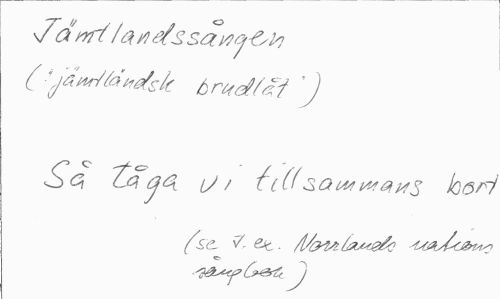 Jämtlandssången
("jämtländsk brudlåt")
Så tåga vi tillsammans bort
(se t.ex. Norrlands nations
sångbok)